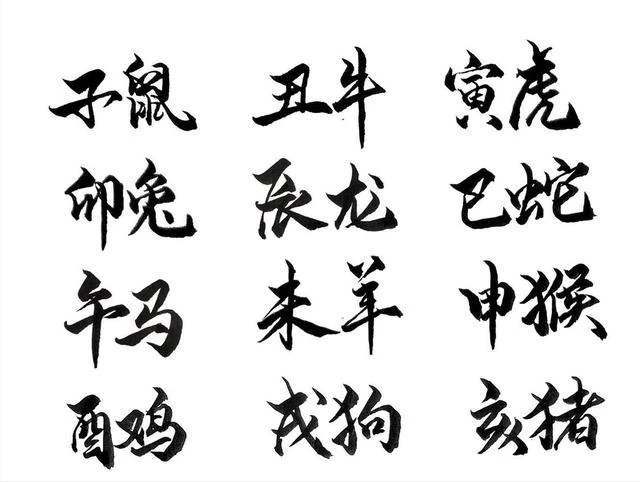 子鼠 丑牛 寅虎
卯兔 辰龙 巳蛇
午马 未羊 申猴
酉鸡 戌狗 亥猪